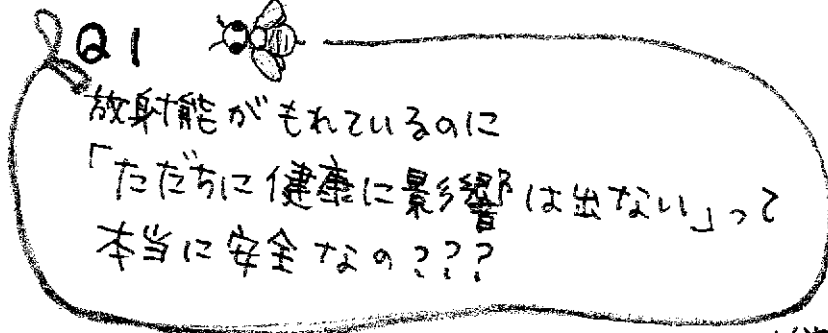 Q1
放射能がもれているのに
「ただちに健康に影響は出ない」って
本当に安全なの???